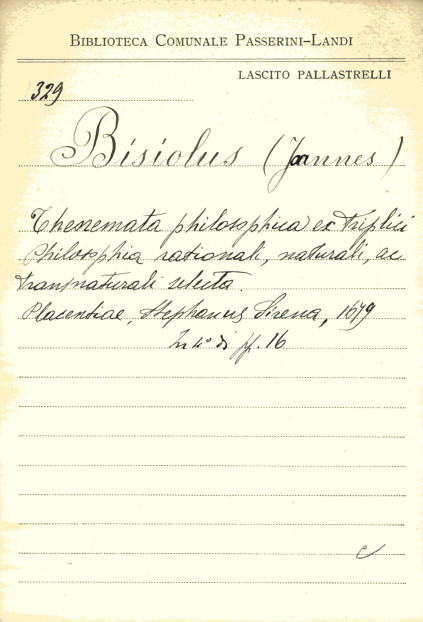 BIBLIOTECA COMUNALE PASSERINI-LANDI
LASCITO PALLASTRELLI
329
Bisiolus (Joannes)
Theoremata philosophica ex triplici
Philosophia rationali, naturali, ac
transnaturali selecta.
Placentiae, Stephanus Sirena, 1679
In 4° di pp. 16